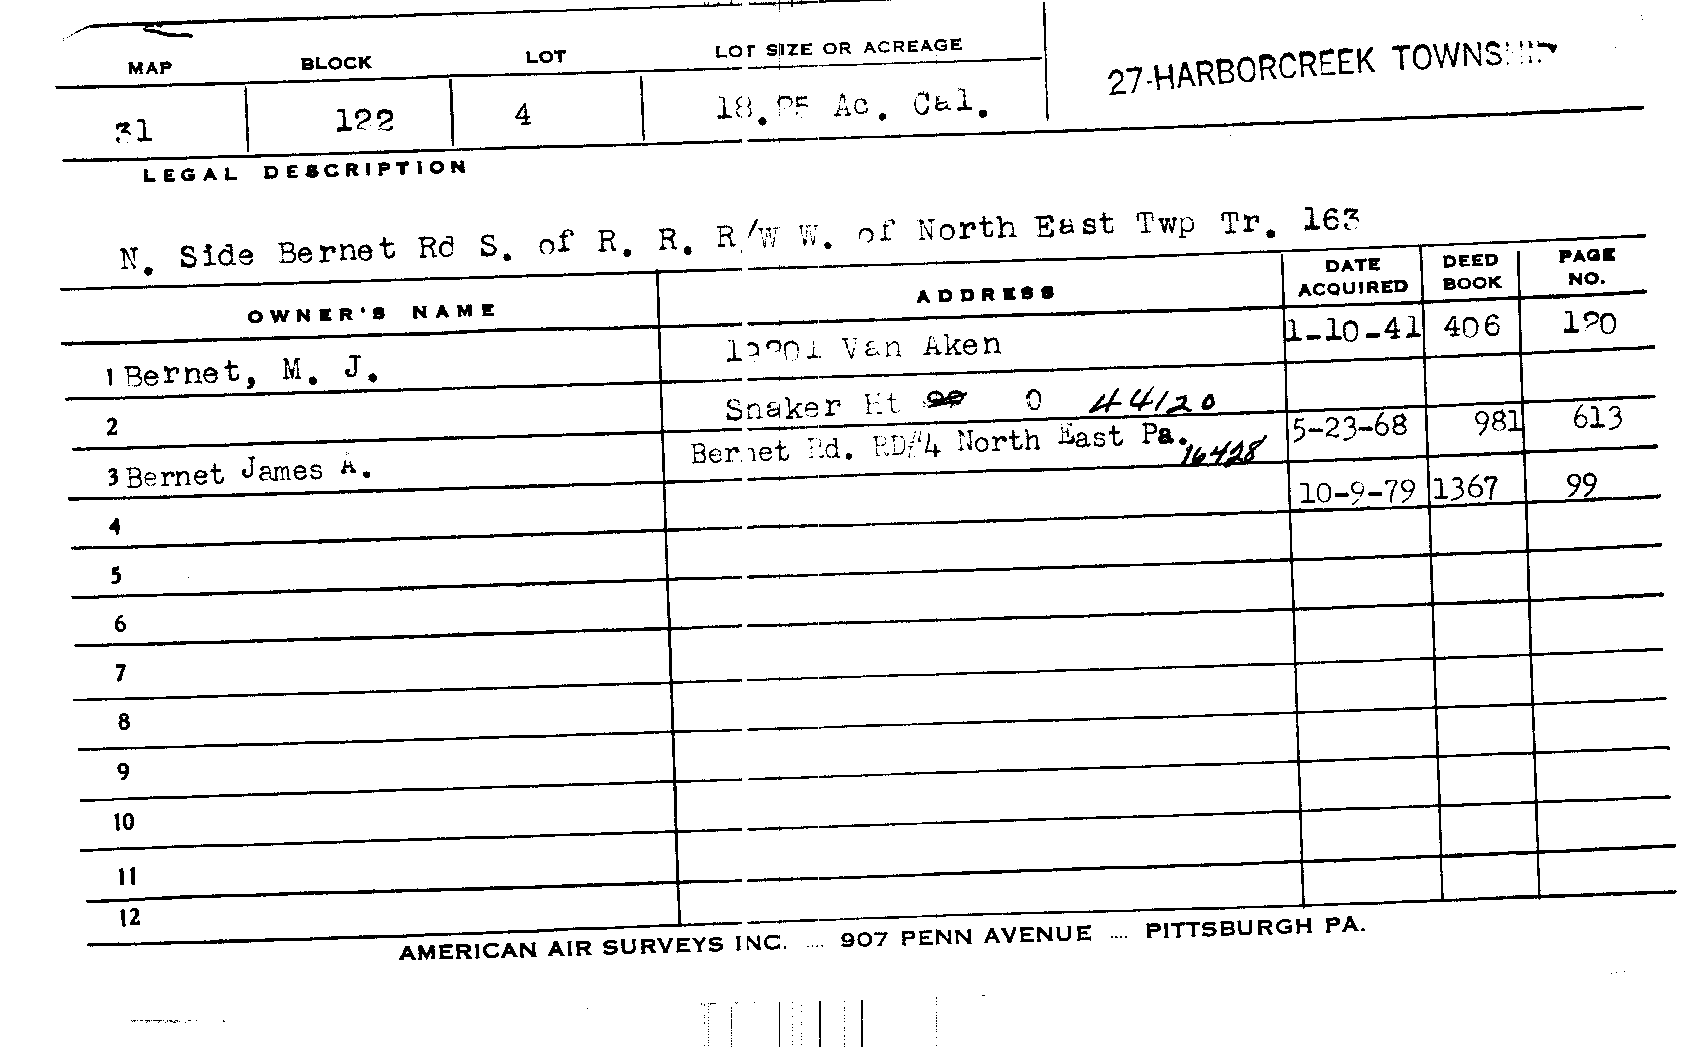 MAP BLOCK LOT LOT SIZE OR ACREAGE 27-HARBORCREEK TOWNSHIP
31 122 4 Ac. Cal.
LEGAL DESCRIPTION
N. Side Bernet Rd S. of R. R. R/W W. of North East Twp Tr. 163
OWNER'S NAME ADDRESS DATE ACQUIRED DEED BOOK PAGE NO.
1 Bernet, M. J. Van Aken 1-10-41 406 120
2 Shaker Ht O 44120
3 Bernet James A. Bernet Rd. RD#4 North East Pa. 16428 5-23-68 981 613
4 10-9-79 1367 99
5
6
7
8
9
10
11
12
AMERICAN AIR SURVEYS INC. .... 907 PENN AVENUE .... PITTSBURGH PA.